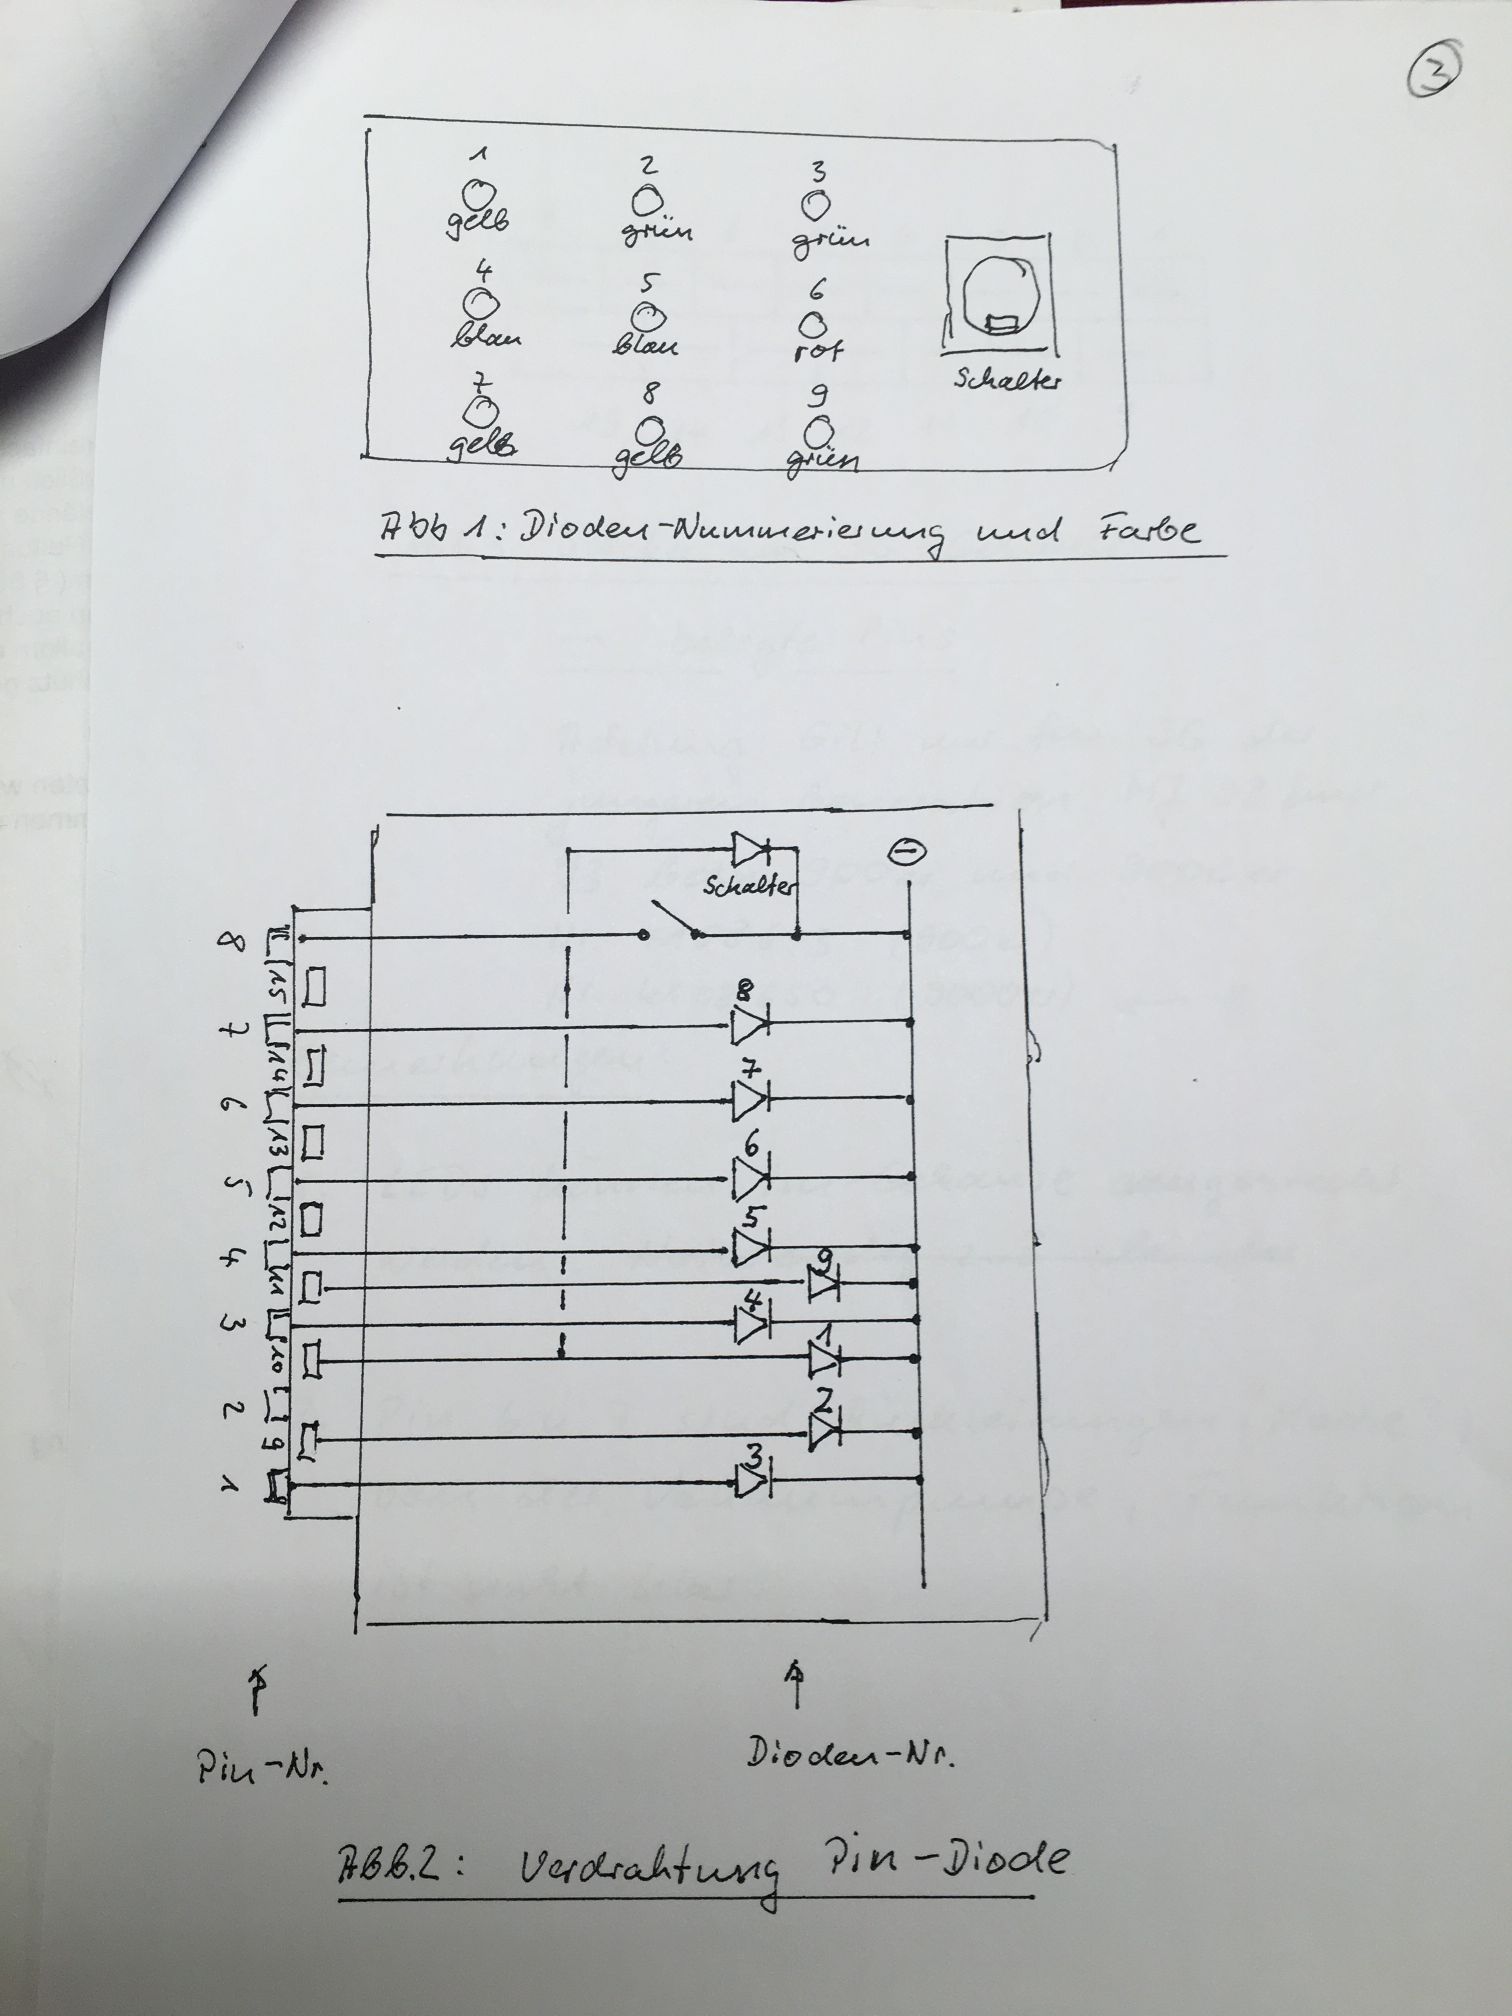 3
1 2 3
gelb grün grün
4 5 6
blau blau rot
Schalter
7 8 9
gelb gelb grün
Abb 1: Dioden-Nummerierung und Farbe
Schalter
8
15
8
7
14
7
6
13
6
5
12
5
4
11
9
3
4
10
1
2
2
9
3
1
Pin-Nr. Dioden-Nr.
Abb.2: Verdrahtung Pin-Diode